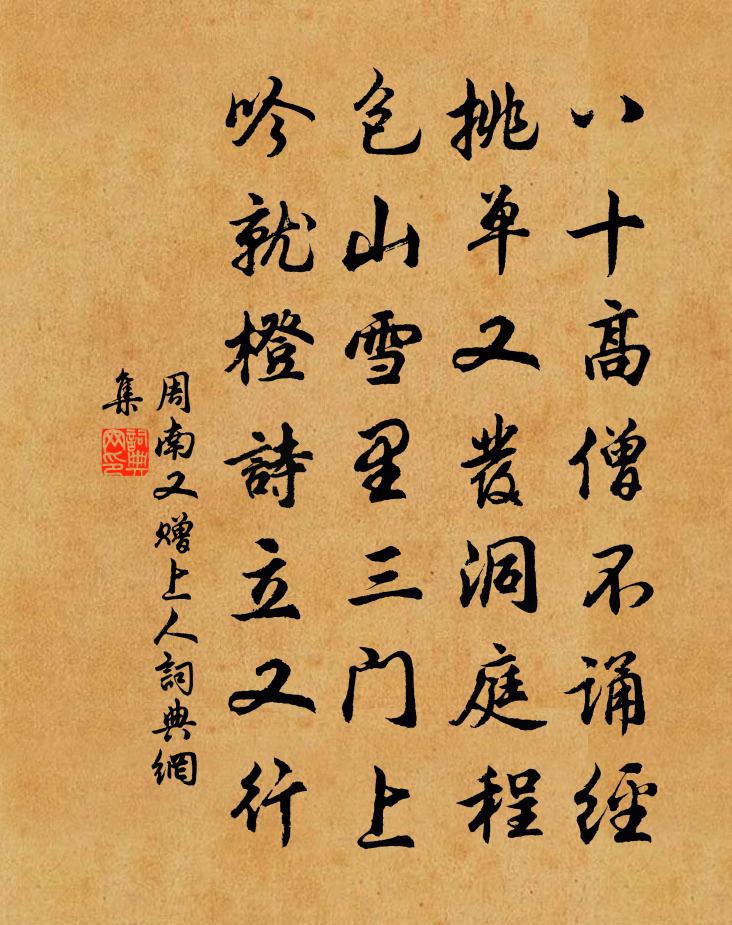 八十高僧不诵經
挑单又發洞庭程
包山雪里三门上
吟就橙詩立又行
周南又赠上人詞典網
集
詞典網印